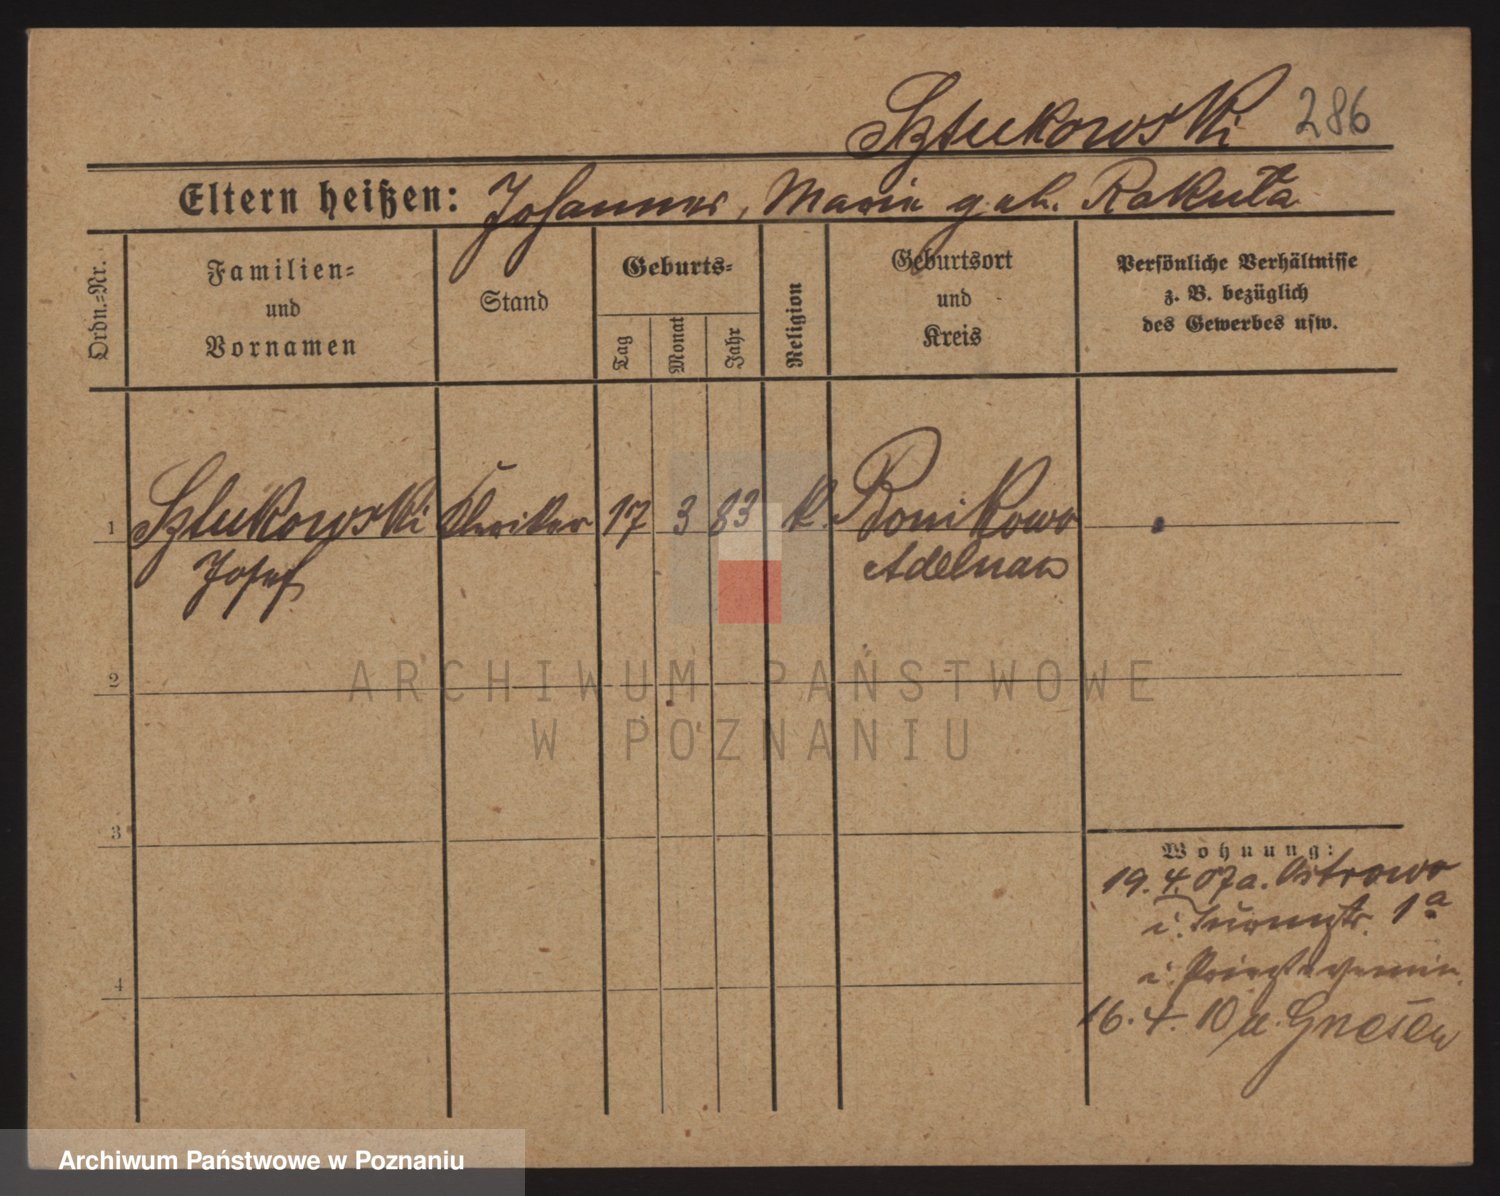 Sztukowski 286
Eltern heißen: Johannes, Marie geb. Rakuta
Ordn.=Nr.
Familien=
und
Vornamen
Stand
Geburts=
Tag
Monat
Jahr
Religion
Geburtsort
und
Kreis
Persönliche Verhältnisse
z. B. bezüglich
des Gewerbes usw.
1 Sztukowski Kleriker 17 3 83 k. Bonikowo
Josef Adelnau
2
3
4
Wohnung:
19. 4. 07 a. Ostrowo
i. Turmstr. 1a
i. Priesterseminar
16. 4. 10 a. Gnesen
ARCHIWUM PAŃSTWOWE
W POZNANIU
Archiwum Państwowe w Poznaniu